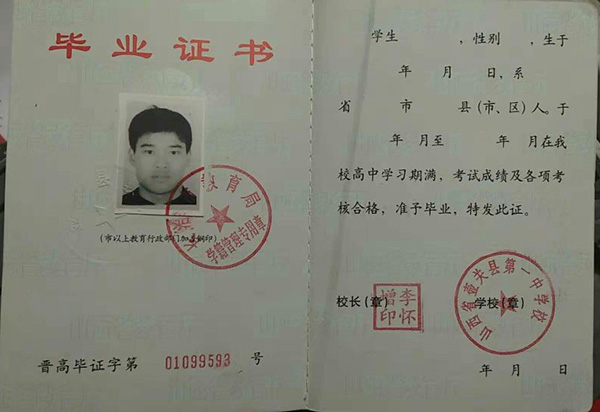 毕业证书
教育局
学籍管理专用章
(市以上教育行政部门加盖钢印)
晋高毕证字第 01099593 号
学生 ,性别 ,生于
年 月 日、系
省 市 县(市、区)人。于
年 月至 年 月在我
校高中学习期满,考试成绩及各项考
核合格,准予毕业,特发此证。
校长(章) 学校(章)
李怀增印
山西省壶关县第一中学校
年 月 日